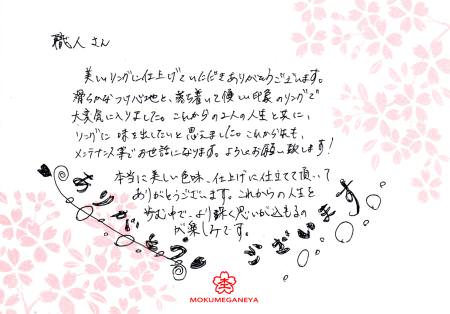 職人さん
美しいリングに仕上げていただきありがとうございます。
滑らかなつけ心地と、落ち着いて優しい印象のリングで
大変気に入りました。これからの2人の人生と共に、
リングに味を出したいと思えました。これからも、
メンテナンス等でお世話になります。よろしくお願い致します!
本当に美しい色味、仕上げに仕立てて頂いて
ありがとうございます。これからの人生を
歩む中で、より輝く思いが込もるの
が楽しみです。
ありがとうございます
MOKUMEGANEYA